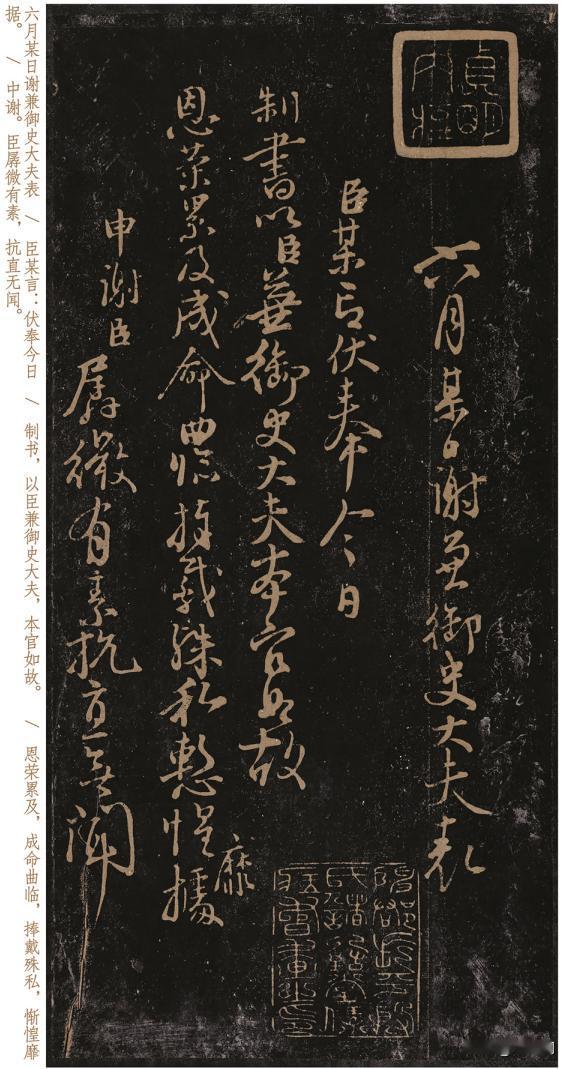 六月某日谢兼御史大夫表 / 臣某言：伏奉今日 / 制书，以臣兼御史大夫，本官如故。 / 恩荣累及，成命曲临，捧戴殊私，惭惶靡
据。 / 中谢。臣孱微有素，抗直无闻。
貞明
內殿
六月某日謝兼御史大夫表
臣某言伏奉今日
制書以臣兼御史大夫本官如故
恩荣累及成命曲临捧戴殊私慙惶靡據
申謝臣
孱微有素抗直無聞